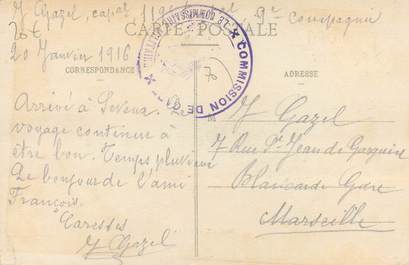 J Gazel, capal 9e compagnie
CARTE POSTALE
20 Janvier 1916
CORRESPONDANCE
ADRESSE
COMMISSION DE
LE COMMISSAIRE MILITAIRE
Arrivé à
voyage continue à
être bon. Temps pluvieux
Le bonjour de l'ami
François.
Caresses
J Gazel
M J Gazel
7 Rue St Jean de
Blancarde Gare
Marseille